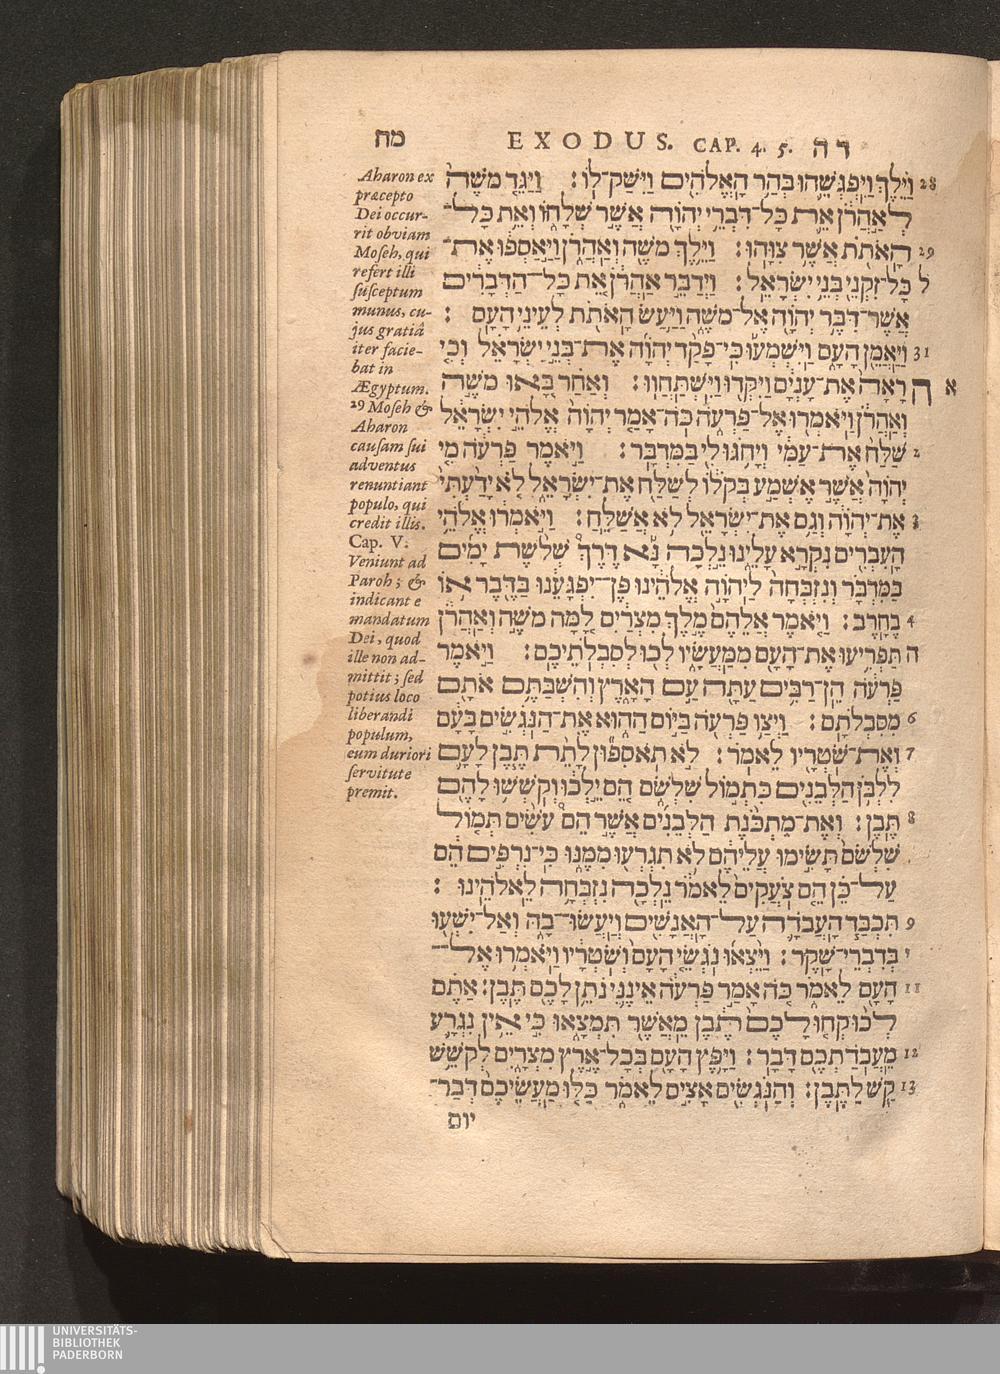 מח EXODUS. CAP. 4. 5. ד ה
וַיֵּלֶךְ וַיִּפְגְּשֵׁהוּ בְּהַר הָאֱלֹהִים וַיִּשַּׁק־לוֹ׃ וַיַּגֵּד מֹשֶׁה 28
לְאַהֲרֹן אֵת כָּל־דִּבְרֵי יְהוָה אֲשֶׁר שְׁלָחוֹ וְאֵת כָּל־
הָאֹתֹת אֲשֶׁר צִוָּהוּ׃ וַיֵּלֶךְ מֹשֶׁה וְאַהֲרֹן וַיַּאַסְפוּ אֶת־ 29
כָּל־זִקְנֵי בְּנֵי יִשְׂרָאֵל׃ וַיְדַבֵּר אַהֲרֹן אֵת כָּל־הַדְּבָרִים ל
אֲשֶׁר־דִּבֶּר יְהוָה אֶל־מֹשֶׁה וַיַּעַשׂ הָאֹתֹת לְעֵינֵי הָעָם׃
וַיַּאֲמֵן הָעָם וַיִּשְׁמְעוּ כִּי־פָקַד יְהוָה אֶת־בְּנֵי יִשְׂרָאֵל וְכִי 31
רָאָה אֶת־עָנְיָם וַיִּקְּדוּ וַיִּשְׁתַּחֲוּוּ׃ וְאַחַר בָּאוּ מֹשֶׁה ה א
וְאַהֲרֹן וַיֹּאמְרוּ אֶל־פַּרְעֹה כֹּה־אָמַר יְהוָה אֱלֹהֵי יִשְׂרָאֵל
שַׁלַּח אֶת־עַמִּי וְיָחֹגּוּ לִי בַּמִּדְבָּר׃ וַיֹּאמֶר פַּרְעֹה מִי 2
יְהוָה אֲשֶׁר אֶשְׁמַע בְּקֹלוֹ לְשַׁלַּח אֶת־יִשְׂרָאֵל לֹא יָדַעְתִּי
אֶת־יְהוָה וְגַם אֶת־יִשְׂרָאֵל לֹא אֲשַׁלֵּחַ׃ וַיֹּאמְרוּ אֱלֹהֵי 3
הָעִבְרִים נִקְרָא עָלֵינוּ נֵלְכָה נָּא דֶּרֶךְ שְׁלֹשֶׁת יָמִים
בַּמִּדְבָּר וְנִזְבְּחָה לַיהוָה אֱלֹהֵינוּ פֶּן־יִפְגָּעֵנוּ בַּדֶּבֶר אוֹ
בֶחָרֶב׃ וַיֹּאמֶר אֲלֵהֶם מֶלֶךְ מִצְרַיִם לָמָּה מֹשֶׁה וְאַהֲרֹן 4
תַּפְרִיעוּ אֶת־הָעָם מִמַּעֲשָׂיו לְכוּ לְסִבְלֹתֵיכֶם׃ וַיֹּאמֶר ה
פַּרְעֹה הֵן־רַבִּים עַתָּה עַם הָאָרֶץ וְהִשְׁבַּתֶּם אֹתָם
מִסִּבְלֹתָם׃ וַיְצַו פַּרְעֹה בַּיּוֹם הַהוּא אֶת־הַנֹּגְשִׂים בָּעָם 6
וְאֶת־שֹׁטְרָיו לֵאמֹר׃ לֹא תֹאסִפוּן לָתֵת תֶּבֶן לָעָם 7
לִלְבֹּן הַלְּבֵנִים כִּתְמוֹל שִׁלְשֹׁם הֵם יֵלְכוּ וְקֹשְׁשׁוּ לָהֶם
תֶּבֶן׃ וְאֶת־מַתְכֹּנֶת הַלְּבֵנִים אֲשֶׁר הֵם עֹשִׂים תְּמוֹל 8
שִׁלְשֹׁם תָּשִׂימוּ עֲלֵיהֶם לֹא תִגְרְעוּ מִמֶּנּוּ כִּי־נִרְפִּים הֵם
עַל־כֵּן הֵם צֹעֲקִים לֵאמֹר נֵלְכָה נִזְבְּחָה לֵאלֹהֵינוּ׃
תִּכְבַּד הָעֲבֹדָה עַל־הָאֲנָשִׁים וְיַעֲשׂוּ־בָהּ וְאַל־יִשְׁעוּ 9
בְּדִבְרֵי־שָׁקֶר׃ וַיֵּצְאוּ נֹגְשֵׂי הָעָם וְשֹׁטְרָיו וַיֹּאמְרוּ אֶל־ י
הָעָם לֵאמֹר כֹּה אָמַר פַּרְעֹה אֵינֶנִּי נֹתֵן לָכֶם תֶּבֶן׃ אַתֶּם 11
לְכוּ קְחוּ לָכֶם תֶּבֶן מֵאֲשֶׁר תִּמְצָאוּ כִּי אֵין נִגְרָע
מֵעֲבֹדַתְכֶם דָּבָר׃ וַיָּפֶץ הָעָם בְּכָל־אֶרֶץ מִצְרָיִם לְקֹשֵׁשׁ 12
קַשׁ לַתֶּבֶן׃ וְהַנֹּגְשִׂים אָצִים לֵאמֹר כַּלּוּ מַעֲשֵׂיכֶם דְּבַר־ 13
יום
Aharon ex
præcepto
Dei occur-
rit obviam
Moseh, qui
refert illi
susceptum
munus, cu-
jus gratiâ
iter facie-
bat in
Ægyptum.
29 Moseh &
Aharon
causam sui
adventus
renuntiant
populo, qui
credit illis.
Cap. V.
Veniunt ad
Paroh; &
indicant e
mandatum
Dei, quod
ille non ad-
mittit; sed
potius loco
liberandi
populum,
eum duriori
servitute
premit.
UNIVERSITÄTS-
BIBLIOTHEK
PADERBORN